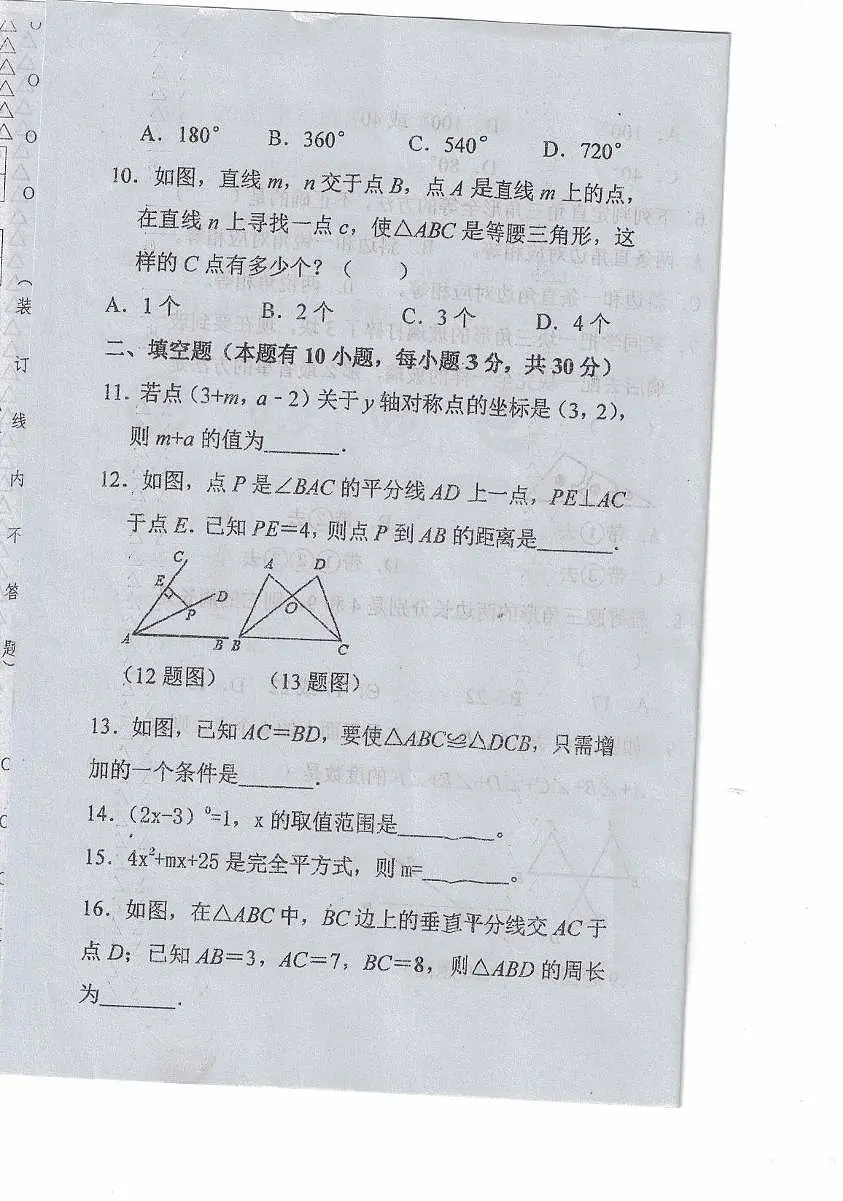 A. 180° B. 360° C. 540° D. 720°
10. 如图，直线 m，n 交于点 B，点 A 是直线 m 上的点，
在直线 n 上寻找一点 c，使△ABC 是等腰三角形，这
样的 C 点有多少个？（ ）
A. 1个 B. 2个 C. 3个 D. 4个
二、填空题（本题有 10 小题，每小题 3 分，共 30 分）
11. 若点（3+m，a-2）关于 y 轴对称点的坐标是（3，2），
则 m+a 的值为______.
12. 如图，点 P 是∠BAC 的平分线 AD 上一点，PE⊥AC
于点 E. 已知 PE＝4，则点 P 到 AB 的距离是______.
C E D P A B
A D O B C
（12 题图） （13 题图）
13. 如图，已知 AC＝BD，要使△ABC≌△DCB，只需增
加的一个条件是______.
14.（2x-3）⁰=1，x 的取值范围是______。
15. 4x²+mx+25 是完全平方式，则 m=______。
16. 如图，在△ABC 中，BC 边上的垂直平分线交 AC 于
点 D；已知 AB＝3，AC＝7，BC＝8，则△ABD 的周长
为______.
（装
订
线
内
不
答
题）